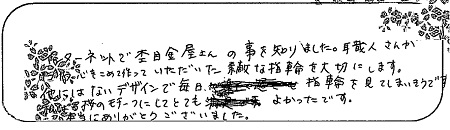 ネットで杢目金屋さんの事を知りました。職人さんが
心をこめ作っていただいた素敵な指輪を大切にします。
他にはないデザインで毎日、指輪を見てしまいそうです
桜をモチーフにしてとても よかったです。
本当にありがとうございました。